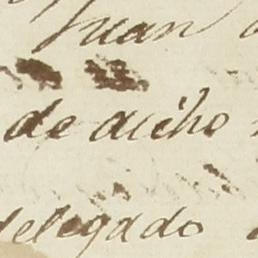 Juan
de dicho
delegado